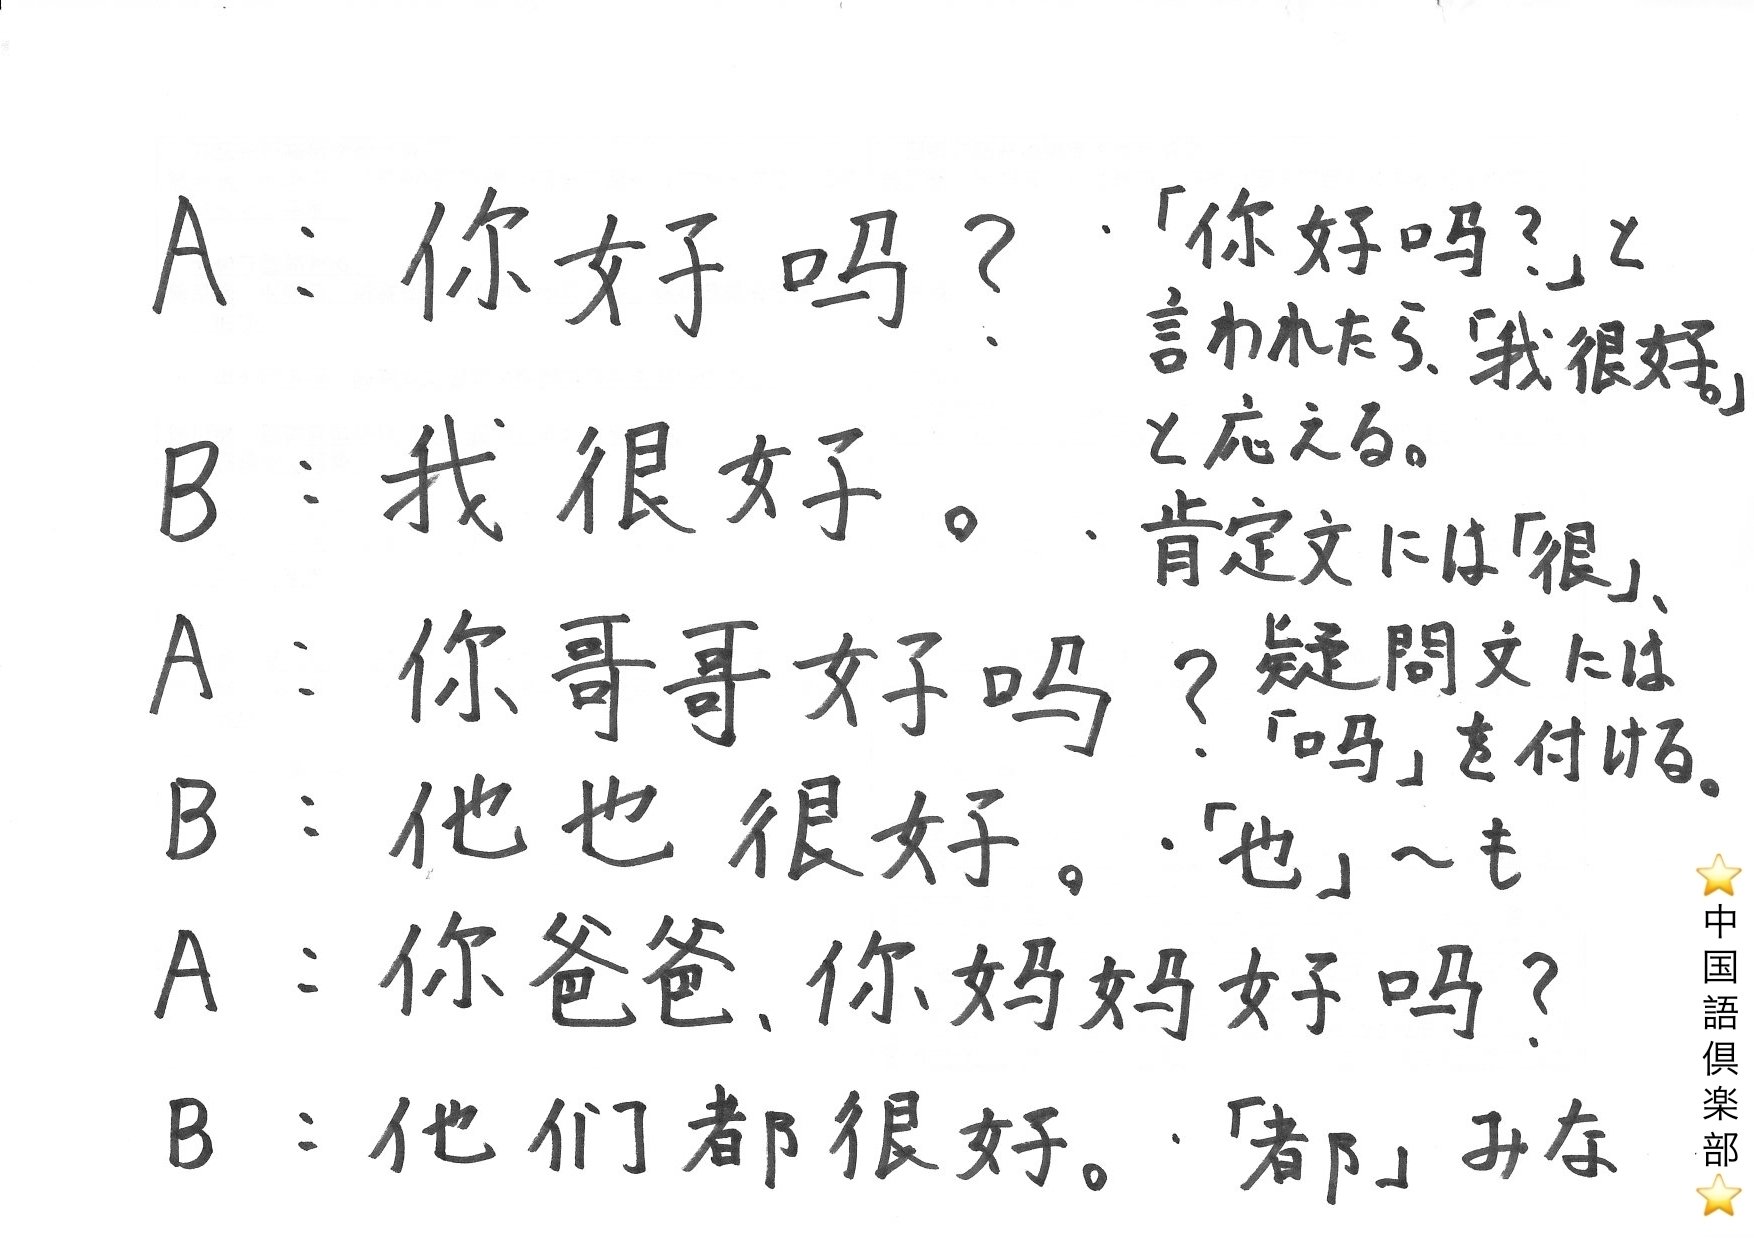 A：你好吗？
B：我很好。
A：你哥哥好吗？
B：他也很好。
A：你爸爸、你妈妈好吗？
B：他们都很好。
・「你好吗？」と
言われたら、「我很好。」
と応える。
・肯定文には「很」、
疑問文には
「吗」を付ける。
・「也」～も
・「都」みな
⭐中国語倶楽部⭐